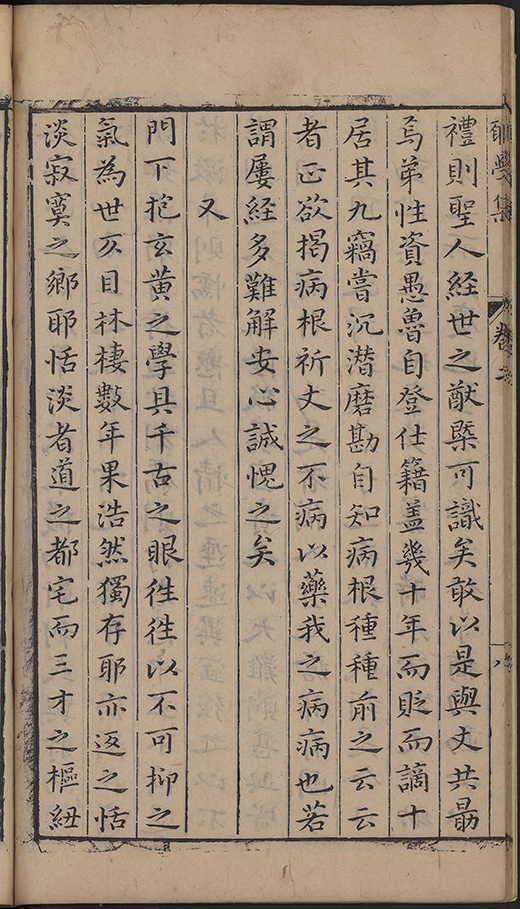 禮則聖人経世之猷槩可識矣敢以是與丈共勗
焉弟性資愚魯自登仕籍盖幾十年而貶而謫十
居其九竊嘗沉潜磨勘自知病根種種前之云云
者正欲揭病根祈丈之不病以藥我之病病也若
謂屢経多難解安心誠愧之矣
又
門下抱玄黄之學具千古之眼徃徃以不可抑之
氣為世仄目林棲數年果浩然獨存耶亦返之恬
淡寂寞之鄉耶恬淡者道之都宅而三才之樞紐